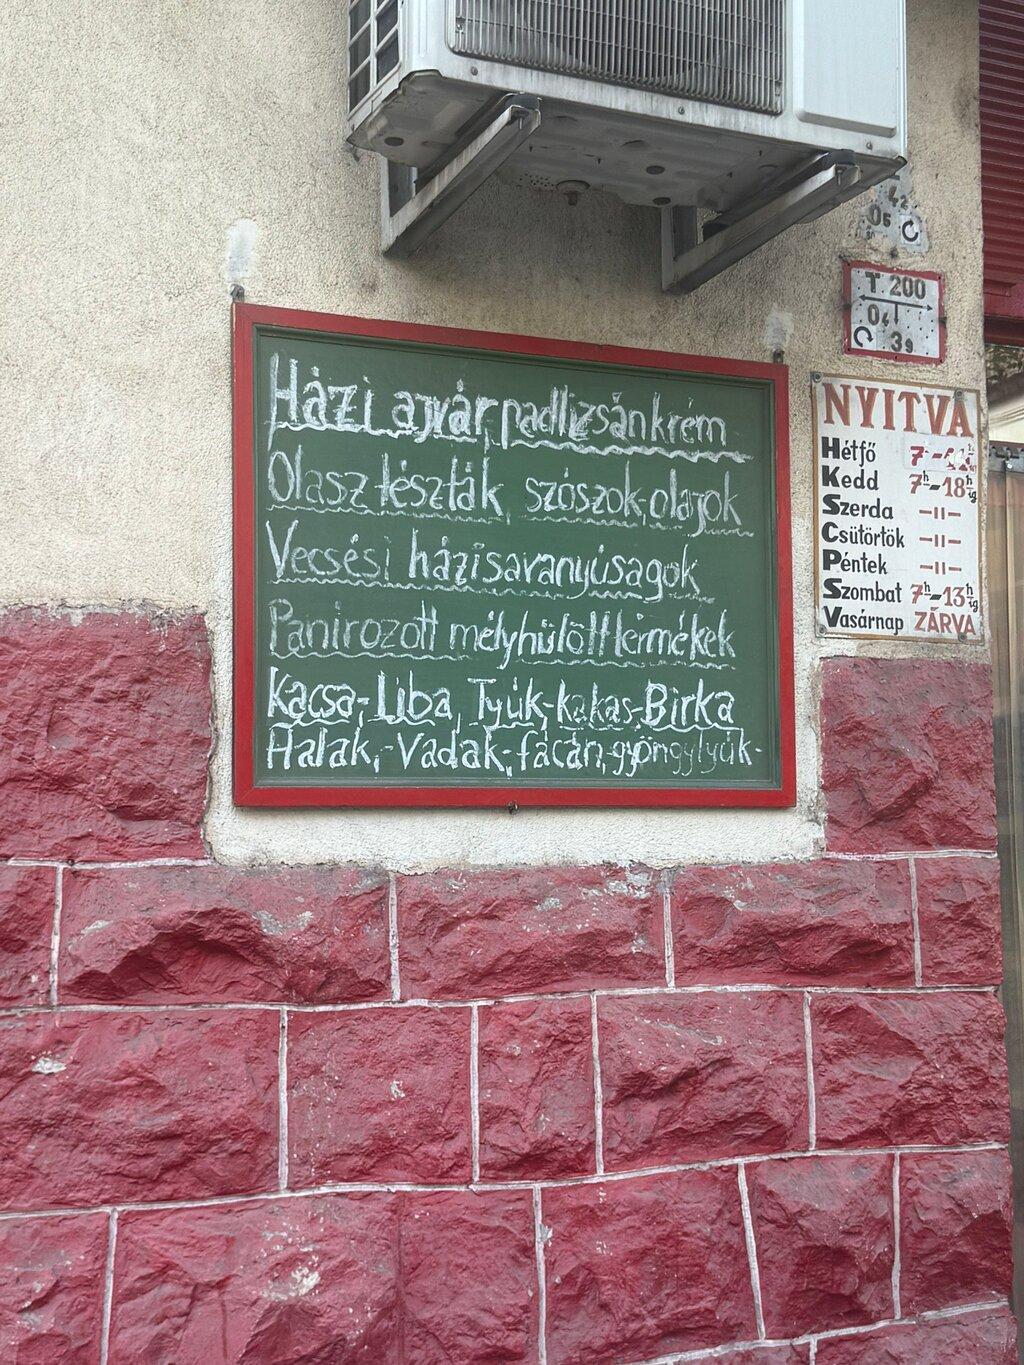 Házi ajvár, padlizsánkrém
Olasz tészták, szószok, olajok
Vecsési házisavanyúságok
Panírozott mélyhűtött termékek
Kacsa-, Liba, Tyúk-kakas-Birka
Halak,-Vadak-fácán, gyöngytyúk-
42
05
T. 200
04
39
NYITVA
Hétfő 7
Kedd 7h-18h ig
Szerda -॥-
Csütörtök -॥-
Péntek -॥-
Szombat 7h-13h ig
Vasárnap ZÁRVA